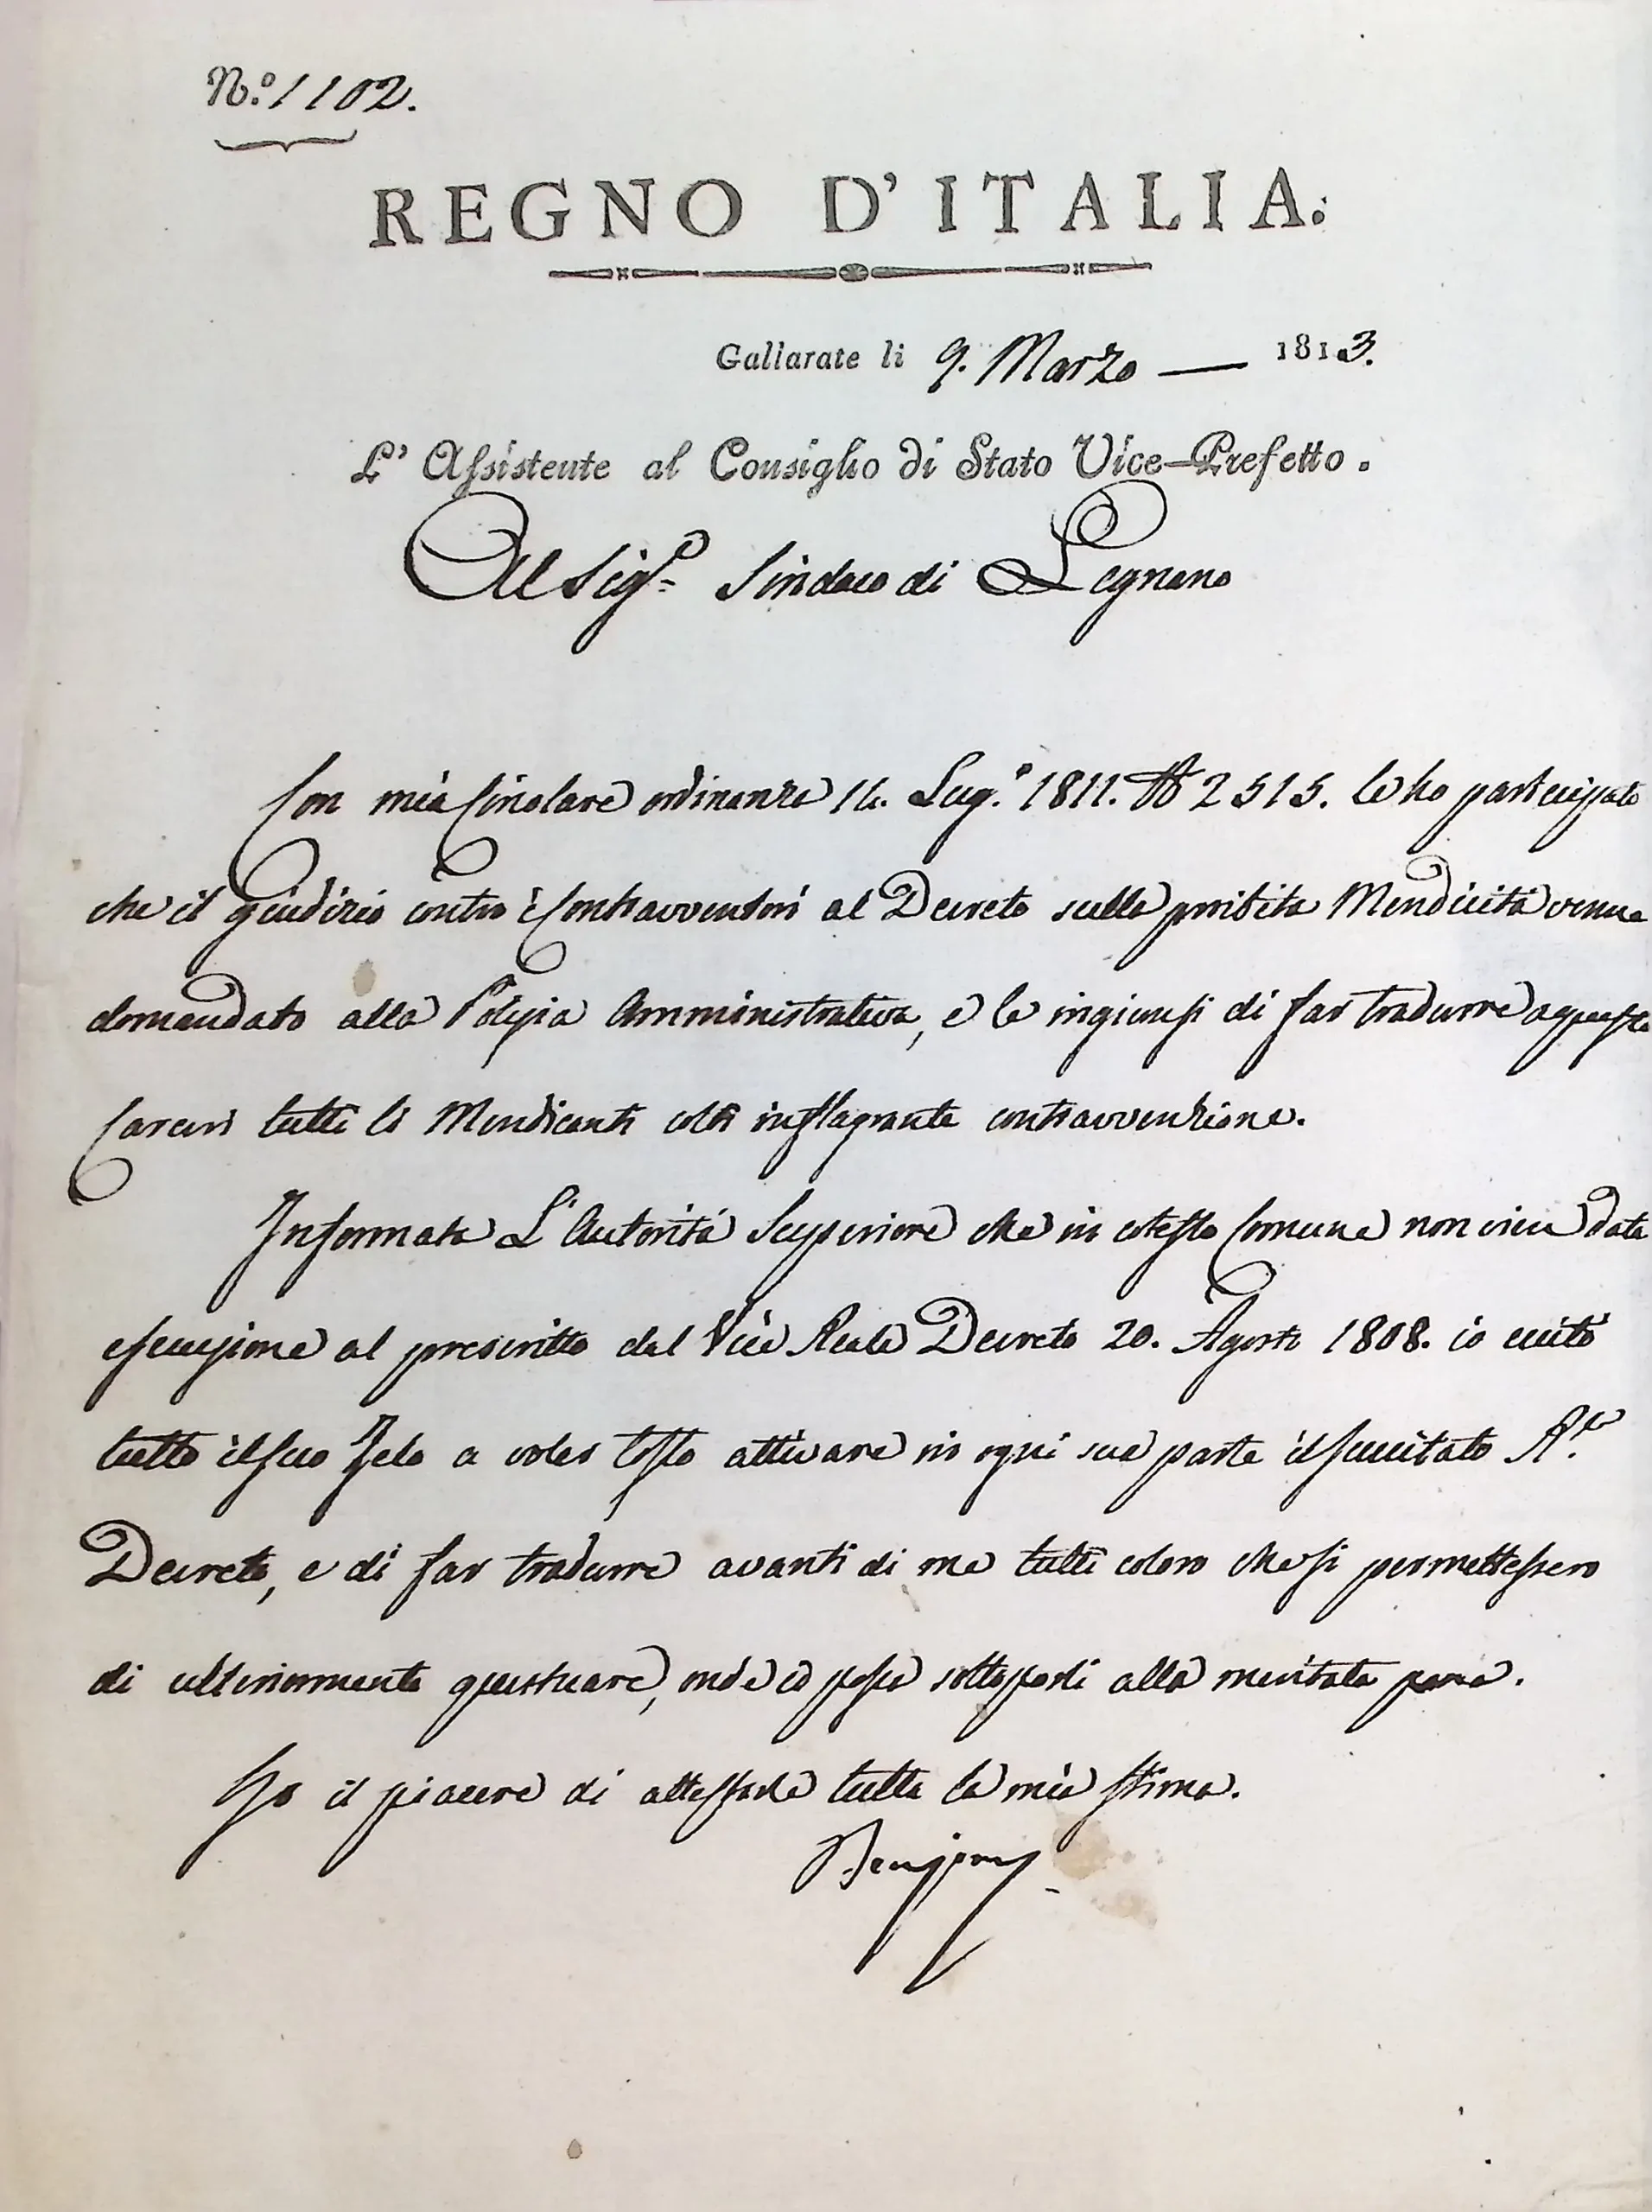 N.º 1102.
REGNO D'ITALIA.
Gallarate li 9. Marzo — 1813.
L' Assistente al Consiglio di Stato Vice-Prefetto.
Al Sig.r Sindaco di Legnano
Con mia Circolare ordinanza Lug.º 1811. Nº 2515. le ho partecipato
che il giudizio contro i Contravventori al Decreto sulla proibita Mendicità venne
domandato alla Polizia Amministrativa, e le ingiunsi di far tradurre a queste
Carceri tutti li Mendicanti colti in flagrante contravvenzione.
Informata L'Autorità Superiore che in cotesto Comune non vien data
esecuzione al prescritto dal Vice Reale Decreto 20. Agosto 1808. io eccito
tutto il suo Zelo a voler tosto attivare in ogni sua parte il succitato R.le
Decreto, e di far tradurre avanti di me tutti coloro che si permettessero
di ulteriormente questuare, onde io possa sottoporli alla meritata pena.
Ho il piacere di attestarle tutta la mia stima.